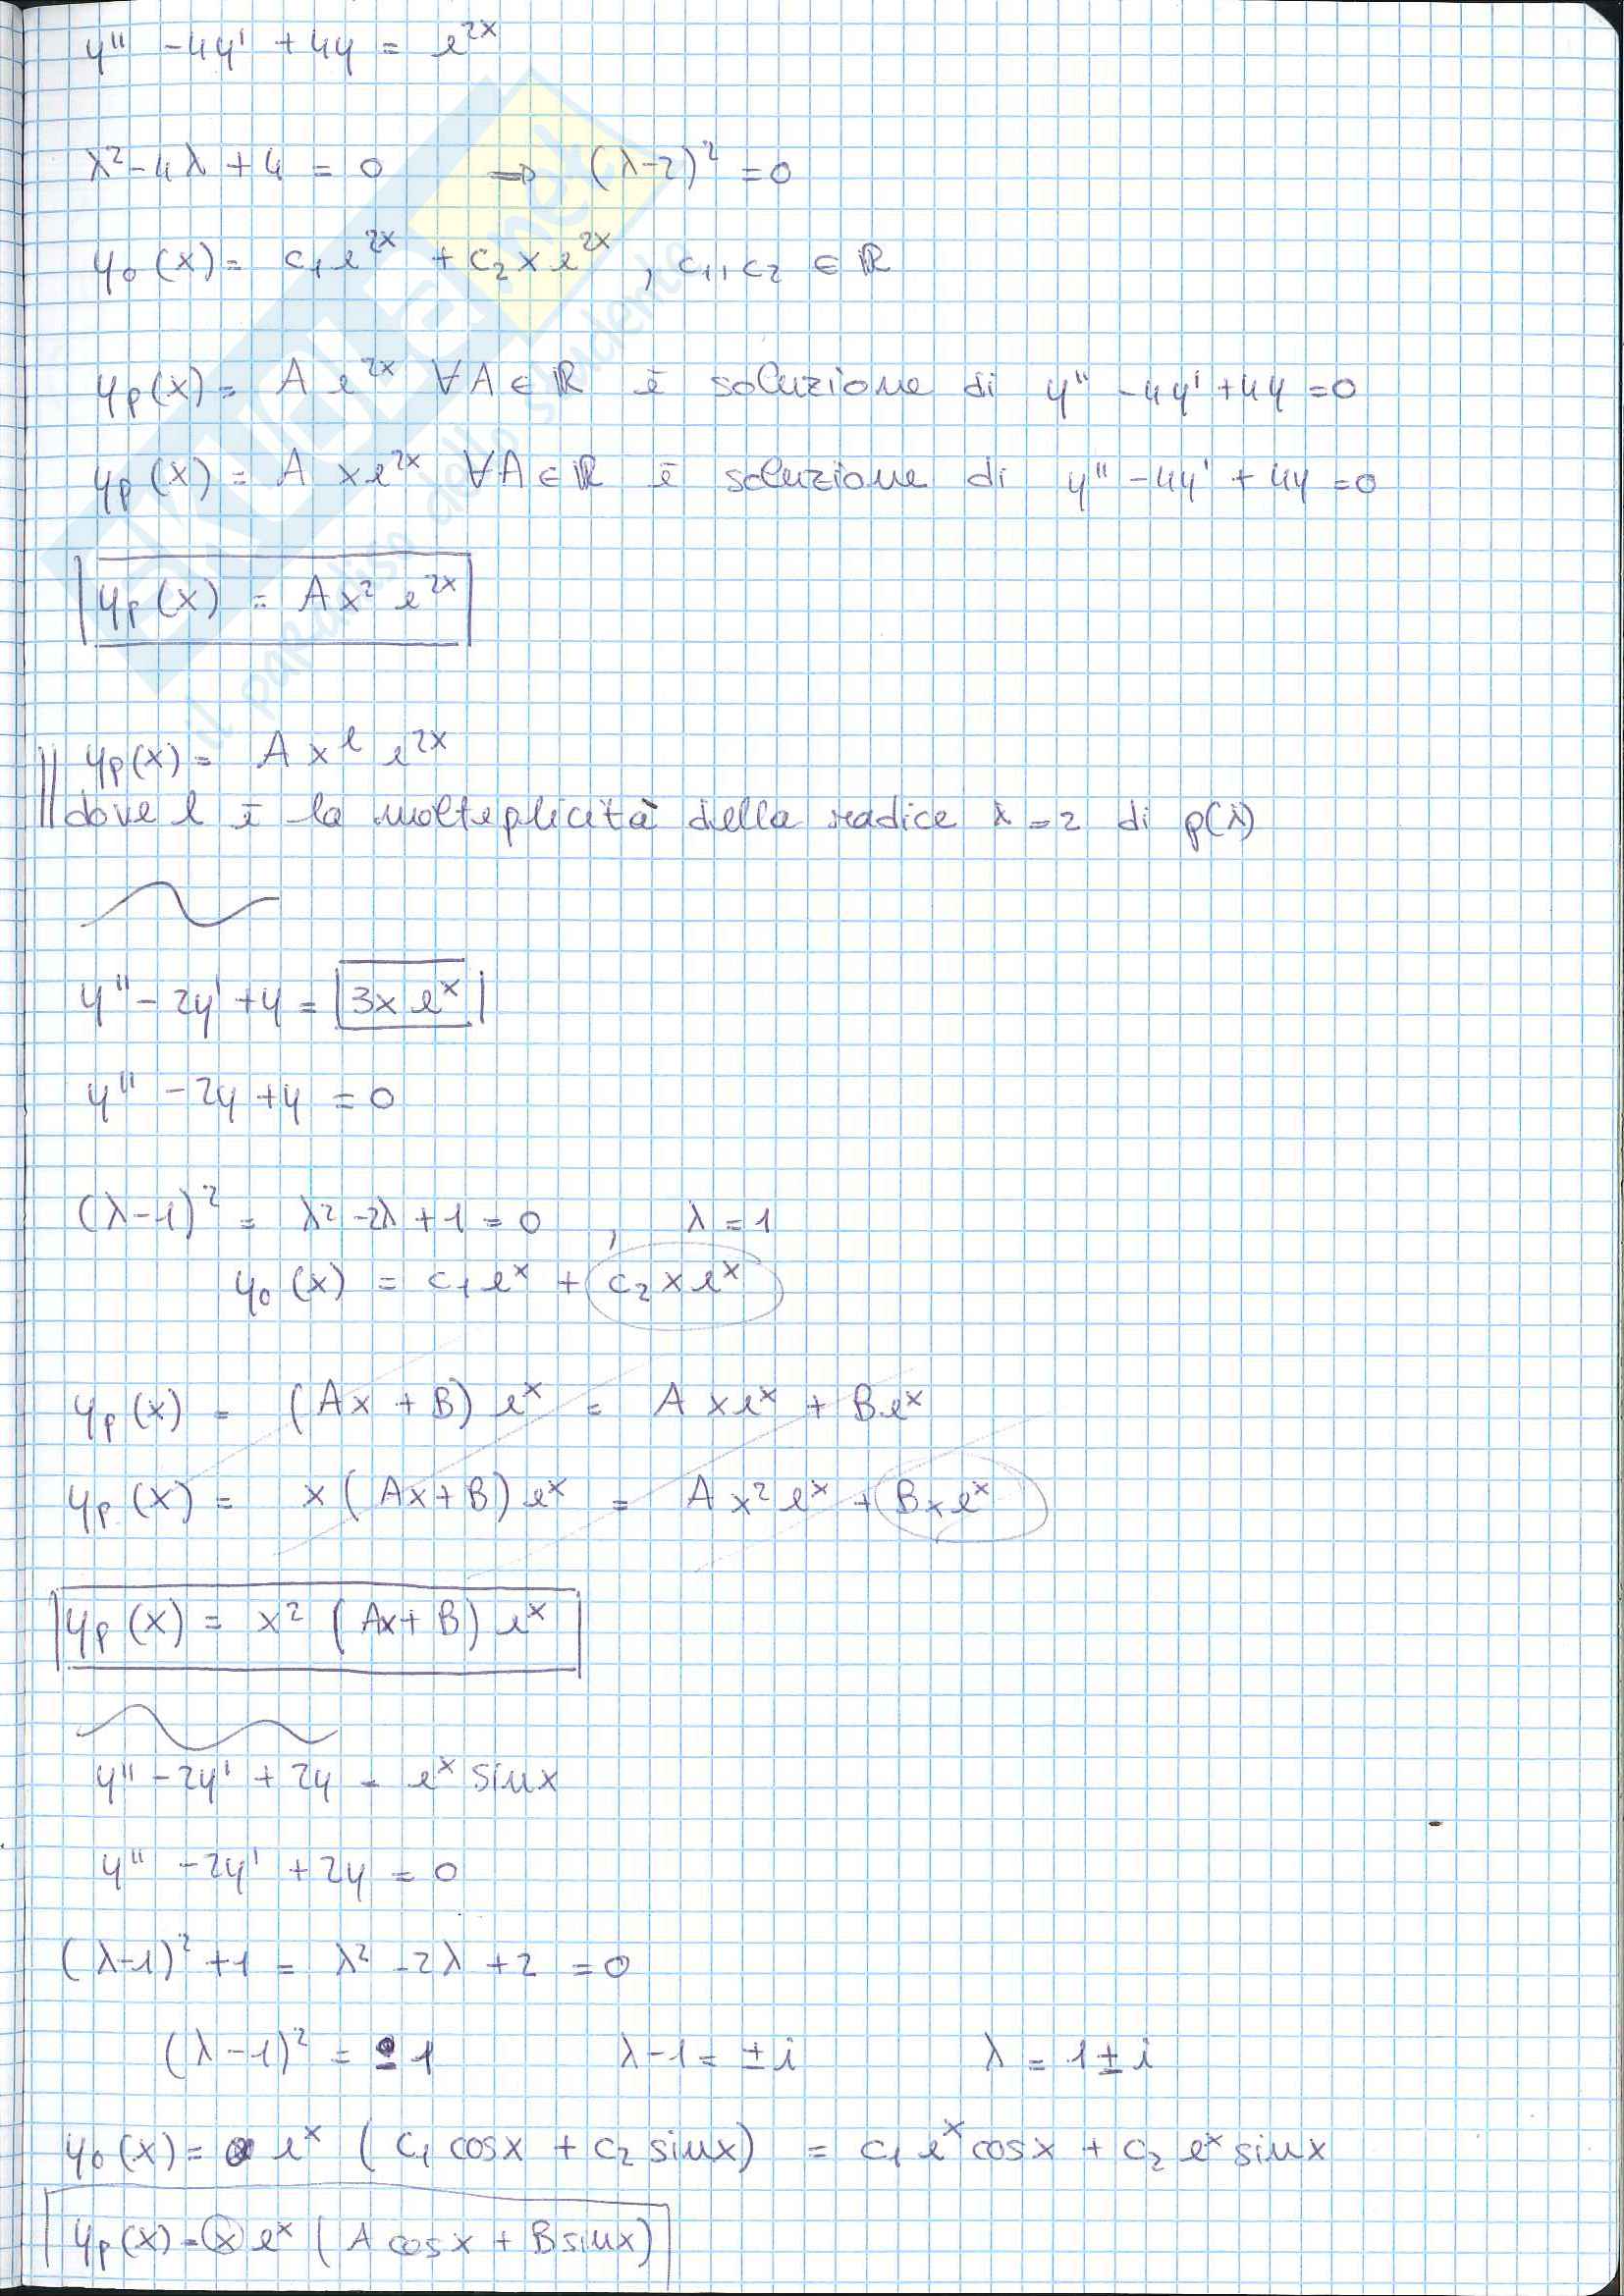 y'' - 4y' + 4y = e^2x
λ² - 4λ + 4 = 0 ⇒ (λ-2)² = 0
y₀(x) = c₁e^2x + c₂xe^2x, c₁, c₂ ∈ ℝ
yp(x) = A e^2x ∀A∈ℝ è soluzione di y'' - 4y' + 4y = 0
yp(x) = A xe^2x ∀A∈ℝ è soluzione di y'' - 4y' + 4y = 0
yp(x) = Ax² e^2x
yp(x) = A x^l e^2x
dove l è la molteplicità della radice λ = 2 di p(λ)
y'' - 2y' + y = 3x e^x
y'' - 2y + y = 0
(λ-1)² = λ² - 2λ + 1 = 0 , λ = 1
y₀(x) = c₁e^x + c₂xe^x
yp(x) = (Ax + B) e^x = A xe^x + Be^x
yp(x) = x(Ax+B) e^x = A x²e^x + Bxe^x
yp(x) = x² (Ax+B) e^x
y'' - 2y' + 2y = e^x sinx
y'' - 2y' + 2y = 0
(λ-1)² + 1 = λ² - 2λ + 2 = 0
(λ-1)² = - 1 λ-1 = ±i λ = 1±i
y₀(x) = e^x (c₁ cosx + c₂ sinx) = c₁ e^x cosx + c₂ e^x sinx
yp(x) = x e^x (A cosx + B sinx)
SKUOLA.net
il paradiso dello studente